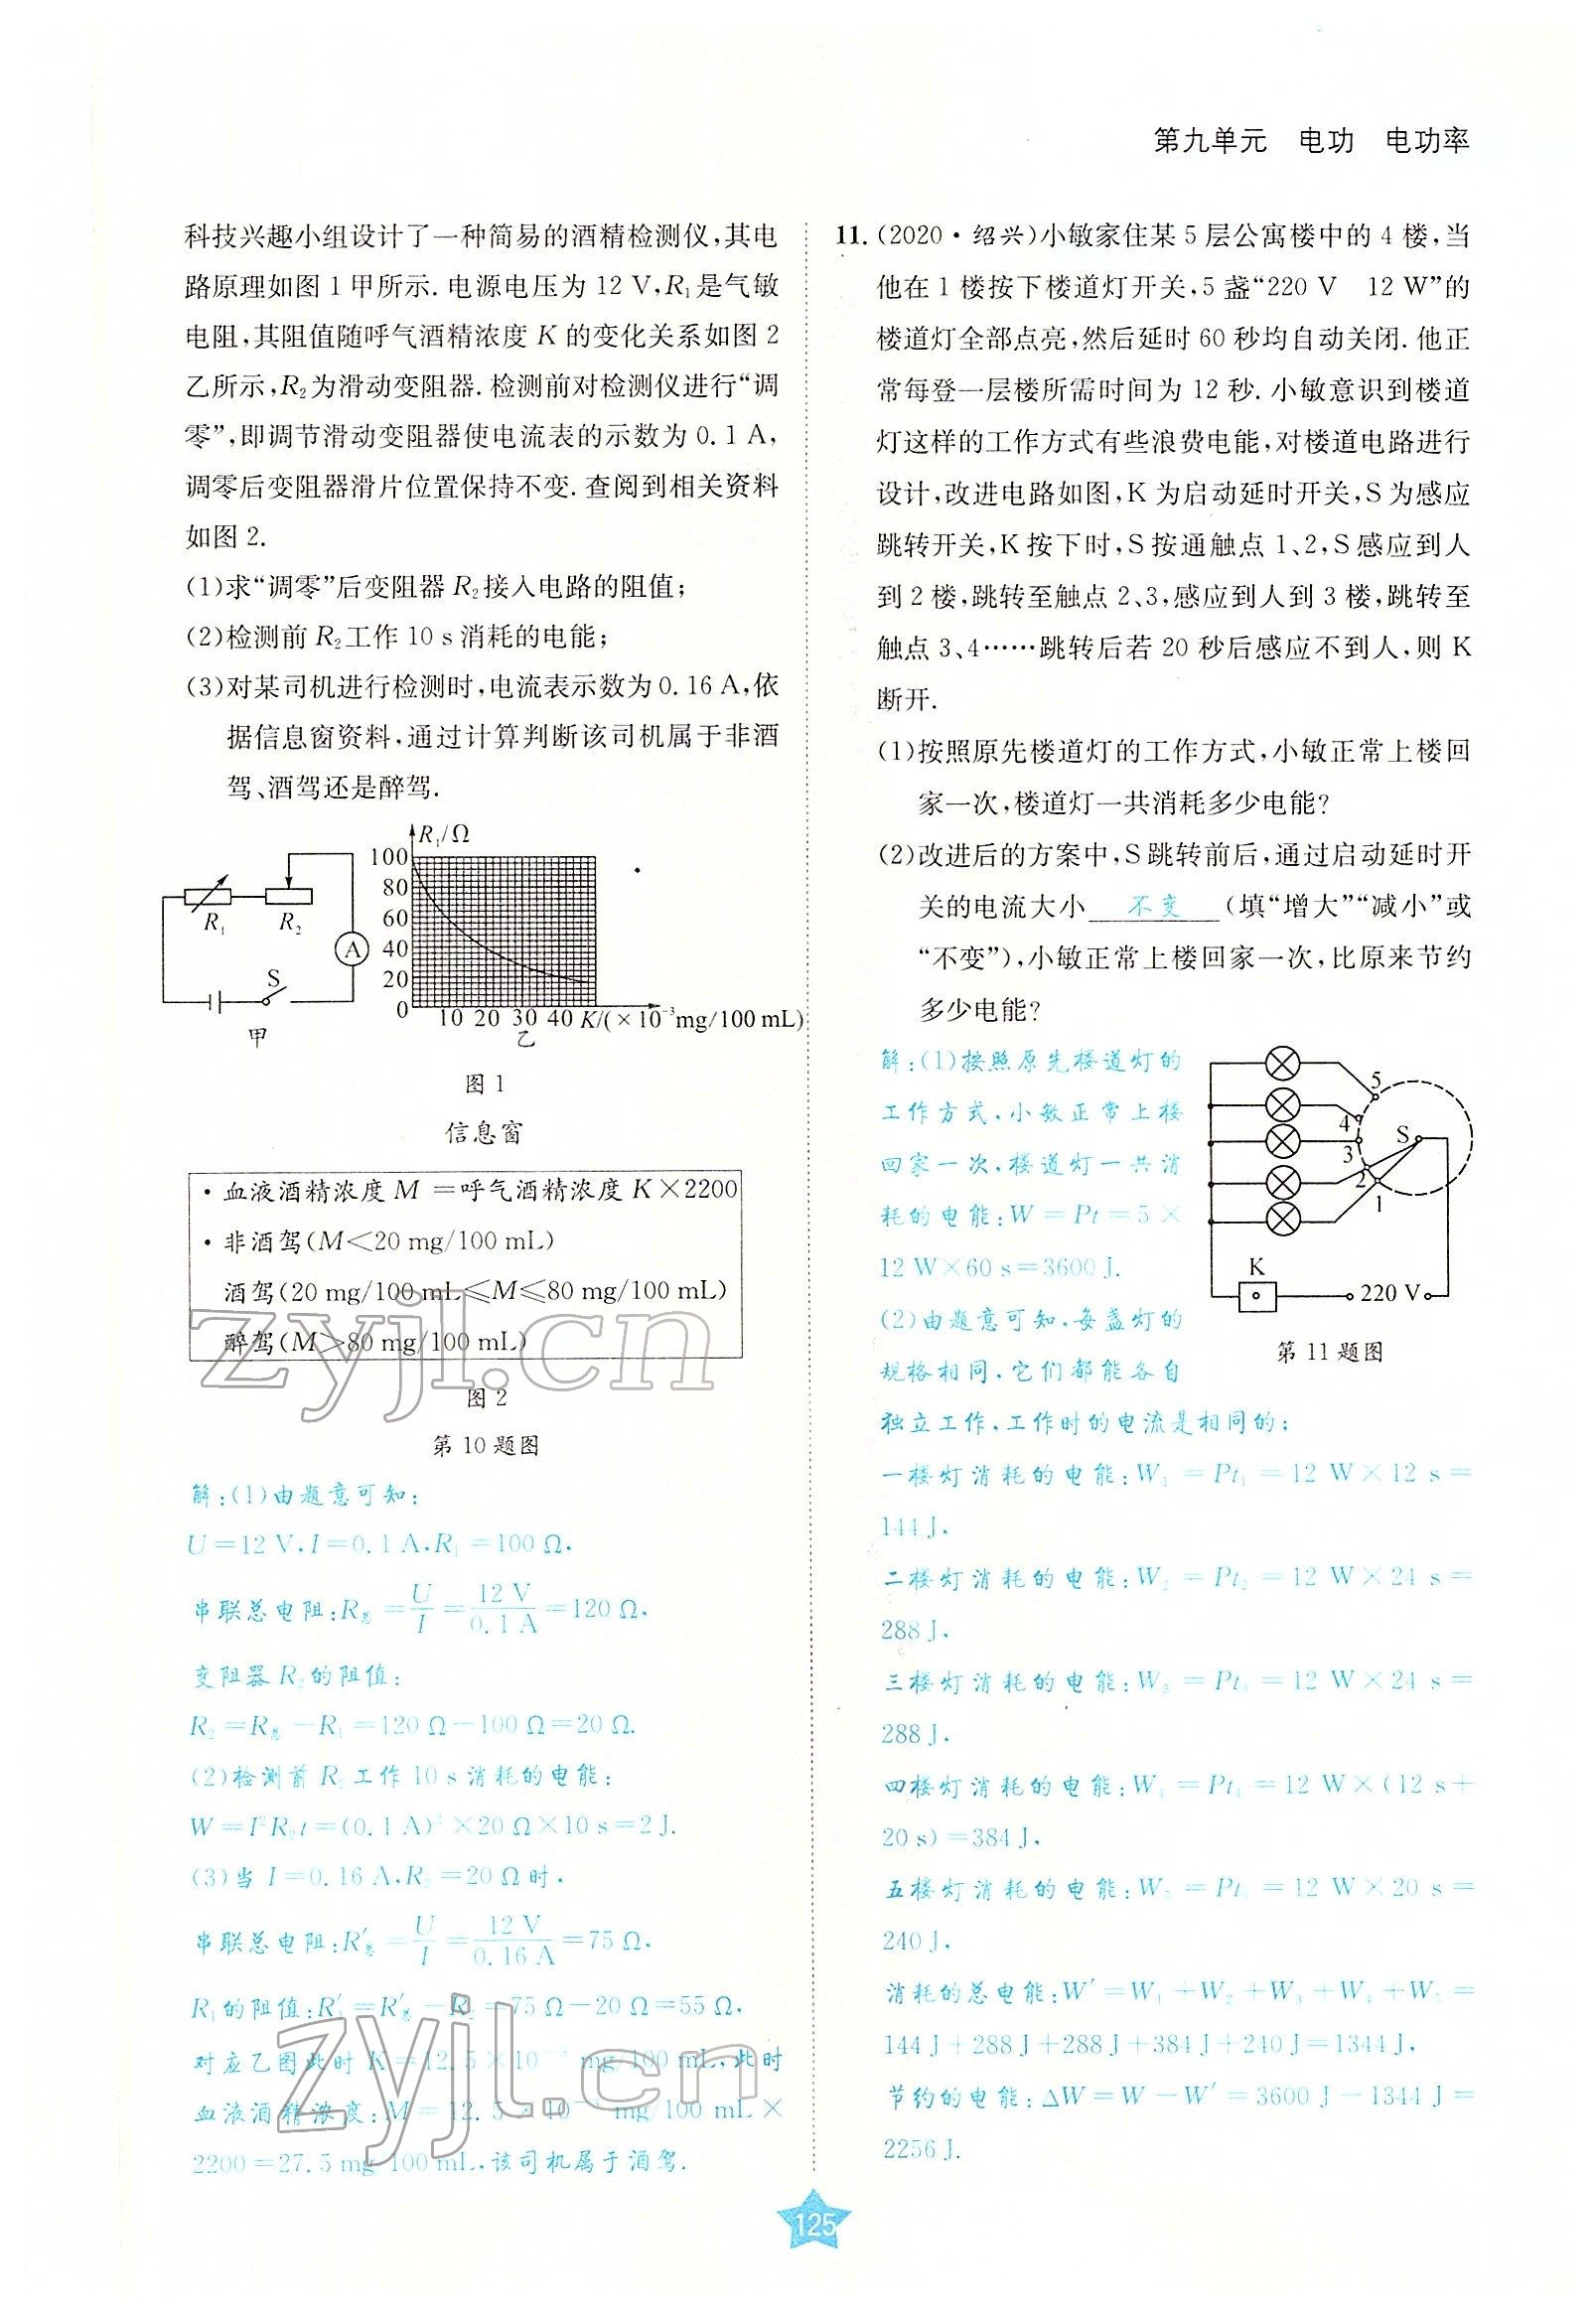 第九单元 电功 电功率
科技兴趣小组设计了一种简易的酒精检测仪,其电
路原理如图1甲所示.电源电压为12 V,R₁是气敏
电阻,其阻值随呼气酒精浓度K的变化关系如图2
乙所示,R₂为滑动变阻器.检测前对检测仪进行“调
零”,即调节滑动变阻器使电流表的示数为0.1 A,
调零后变阻器滑片位置保持不变.查阅到相关资料
如图2.
(1)求“调零”后变阻器R₂接入电路的阻值;
(2)检测前R₂工作10 s消耗的电能;
(3)对某司机进行检测时,电流表示数为0.16 A,依
据信息窗资料,通过计算判断该司机属于非酒
驾、酒驾还是醉驾.
R₁ R₂ A S
甲
R₁/Ω
100
80
60
40
20
0
10 20 30 40 K/(×10⁻³mg/100 mL)
乙
图1
信息窗
·血液酒精浓度M=呼气酒精浓度K×2200
·非酒驾(M<20 mg/100 mL)
酒驾(20 mg/100 mL≤M≤80 mg/100 mL)
醉驾(M>80 mg/100 mL)
图2
第10题图
解:(1)由题意可知:
U=12 V,I=0.1 A,R₁=100 Ω,
串联总电阻:R总=U/I=12 V/0.1 A=120 Ω,
变阻器R₂的阻值:
R₂=R总-R₁=120 Ω-100 Ω=20 Ω.
(2)检测前R₂工作10 s消耗的电能:
W=I²R₂t=(0.1 A)²×20 Ω×10 s=2 J.
(3)当I=0.16 A,R₂=20 Ω时,
串联总电阻:R′总=U/I=12 V/0.16 A=75 Ω,
R₁的阻值:R′₁=R′总-R₂=75 Ω-20 Ω=55 Ω,
对应乙图此时K=12.5×10⁻³ mg/100 mL,此时
血液酒精浓度:M=12.5×10⁻³ mg/100 mL×
2200=27.5 mg/100 mL,该司机属于酒驾.
11.(2020·绍兴)小敏家住某5层公寓楼中的4楼,当
他在1楼按下楼道灯开关,5盏“220 V 12 W”的
楼道灯全部点亮,然后延时60秒均自动关闭.他正
常每登一层楼所需时间为12秒.小敏意识到楼道
灯这样的工作方式有些浪费电能,对楼道电路进行
设计,改进电路如图,K为启动延时开关,S为感应
跳转开关,K按下时,S按通触点1、2,S感应到人
到2楼,跳转至触点2、3,感应到人到3楼,跳转至
触点3、4……跳转后若20秒后感应不到人,则K
断开.
(1)按照原先楼道灯的工作方式,小敏正常上楼回
家一次,楼道灯一共消耗多少电能?
(2)改进后的方案中,S跳转前后,通过启动延时开
关的电流大小 不变 (填“增大”“减小”或
“不变”),小敏正常上楼回家一次,比原来节约
多少电能?
解:(1)按照原先楼道灯的
工作方式,小敏正常上楼
回家一次,楼道灯一共消
耗的电能:W=Pt=5×
12 W×60 s=3600 J.
(2)由题意可知,每盏灯的
规格相同,它们都能各自
5
4
3
2
1
S
K
220 V
第11题图
独立工作,工作时的电流是相同的;
一楼灯消耗的电能:W₁=Pt₁=12 W×12 s=
144 J,
二楼灯消耗的电能:W₂=Pt₂=12 W×24 s=
288 J,
三楼灯消耗的电能:W₃=Pt₃=12 W×24 s=
288 J,
四楼灯消耗的电能:W₄=Pt₄=12 W×(12 s+
20 s)=384 J,
五楼灯消耗的电能:W₅=Pt₅=12 W×20 s=
240 J,
消耗的总电能:W′=W₁+W₂+W₃+W₄+W₅=
144 J+288 J+288 J+384 J+240 J=1344 J,
节约的电能:ΔW=W-W′=3600 J-1344 J=
2256 J.
125
zyjl.cn
zyjl.cn